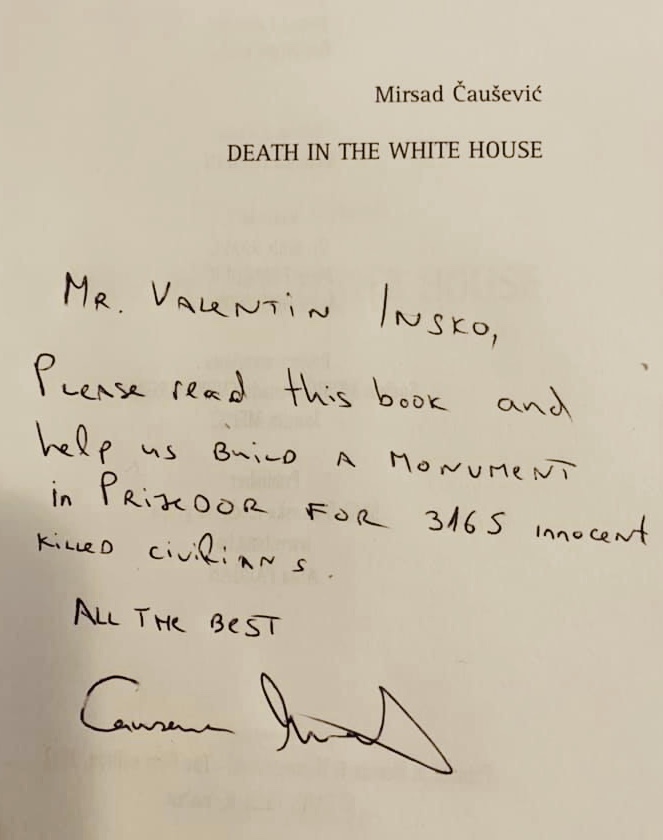 Mirsad Čaušević
DEATH IN THE WHITE HOUSE
MR. VALENTIN INSKO,
Please read this book and
help us BUILD A MONUMENT
in PRIJEDOR FOR 3165 innocent
KILLED civilians.
ALL THE BEST